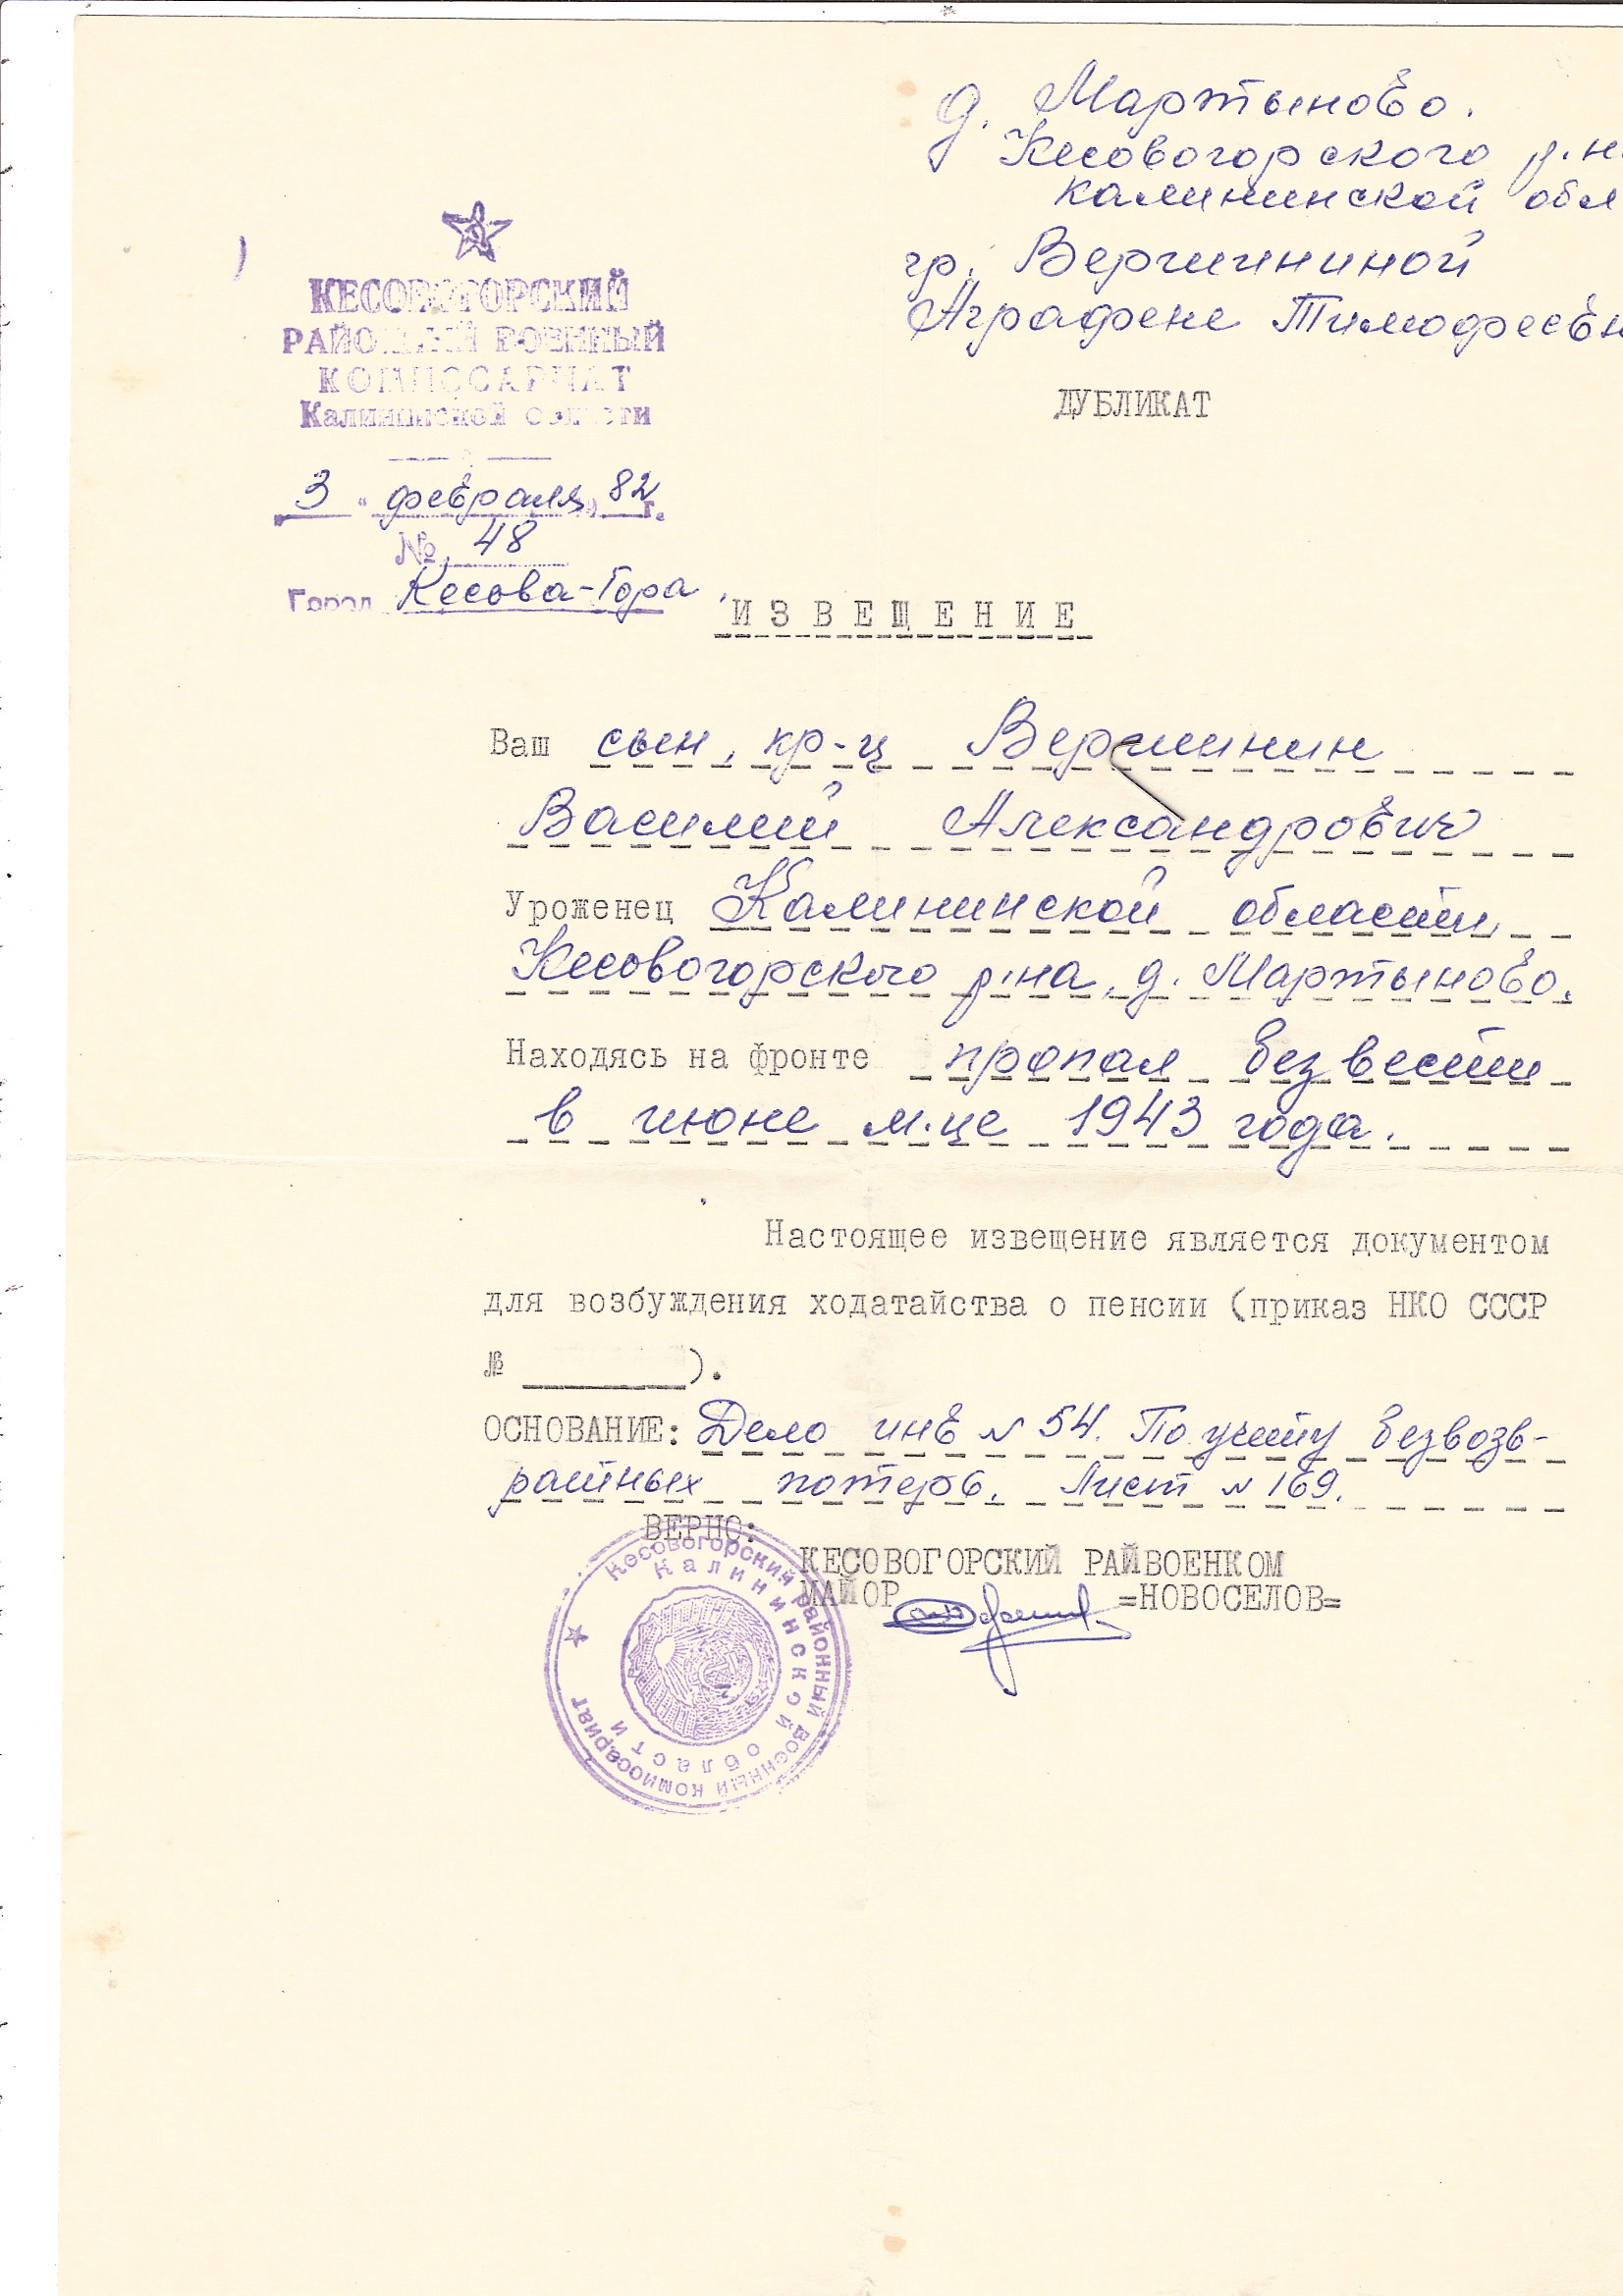 д. Мартыново.
Кесовогорского р.н
Калининской обл
гр. Вершининой
Аграфене Тимофеевн
КЕСОВОГОРСКИЙ
РАЙОННЫЙ ВОЕННЫЙ
КОМИССАРИАТ
Калининской области
ДУБЛИКАТ
"3" февраля 82 г.
№ 48
Город Кесова-Гора
ИЗВЕЩЕНИЕ
Ваш сын, кр-ц Вершинин
Василий Александрович
Уроженец Калининской области,
Кесовогорского р-на, д. Мартыново.
Находясь на фронте пропал без вести
в июне м-це 1943 года.
Настоящее извещение является документом
для возбуждения ходатайства о пенсии (приказ НКО СССР
№ ______).
ОСНОВАНИЕ: Дело инв № 54. По учету безвозв-
ратных потерь. Лист № 169.
ВЕРНО:
КЕСОВОГОРСКИЙ РАЙВОЕНКОМ
МАЙОР =НОВОСЕЛОВ=
Кесовогорский районный военный комиссариат
Калининской области